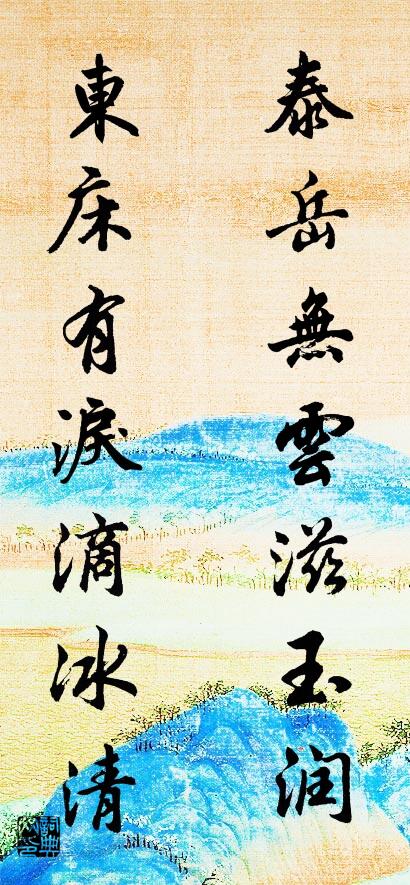 泰岳無雲滋玉润
東床有淚滴冰清